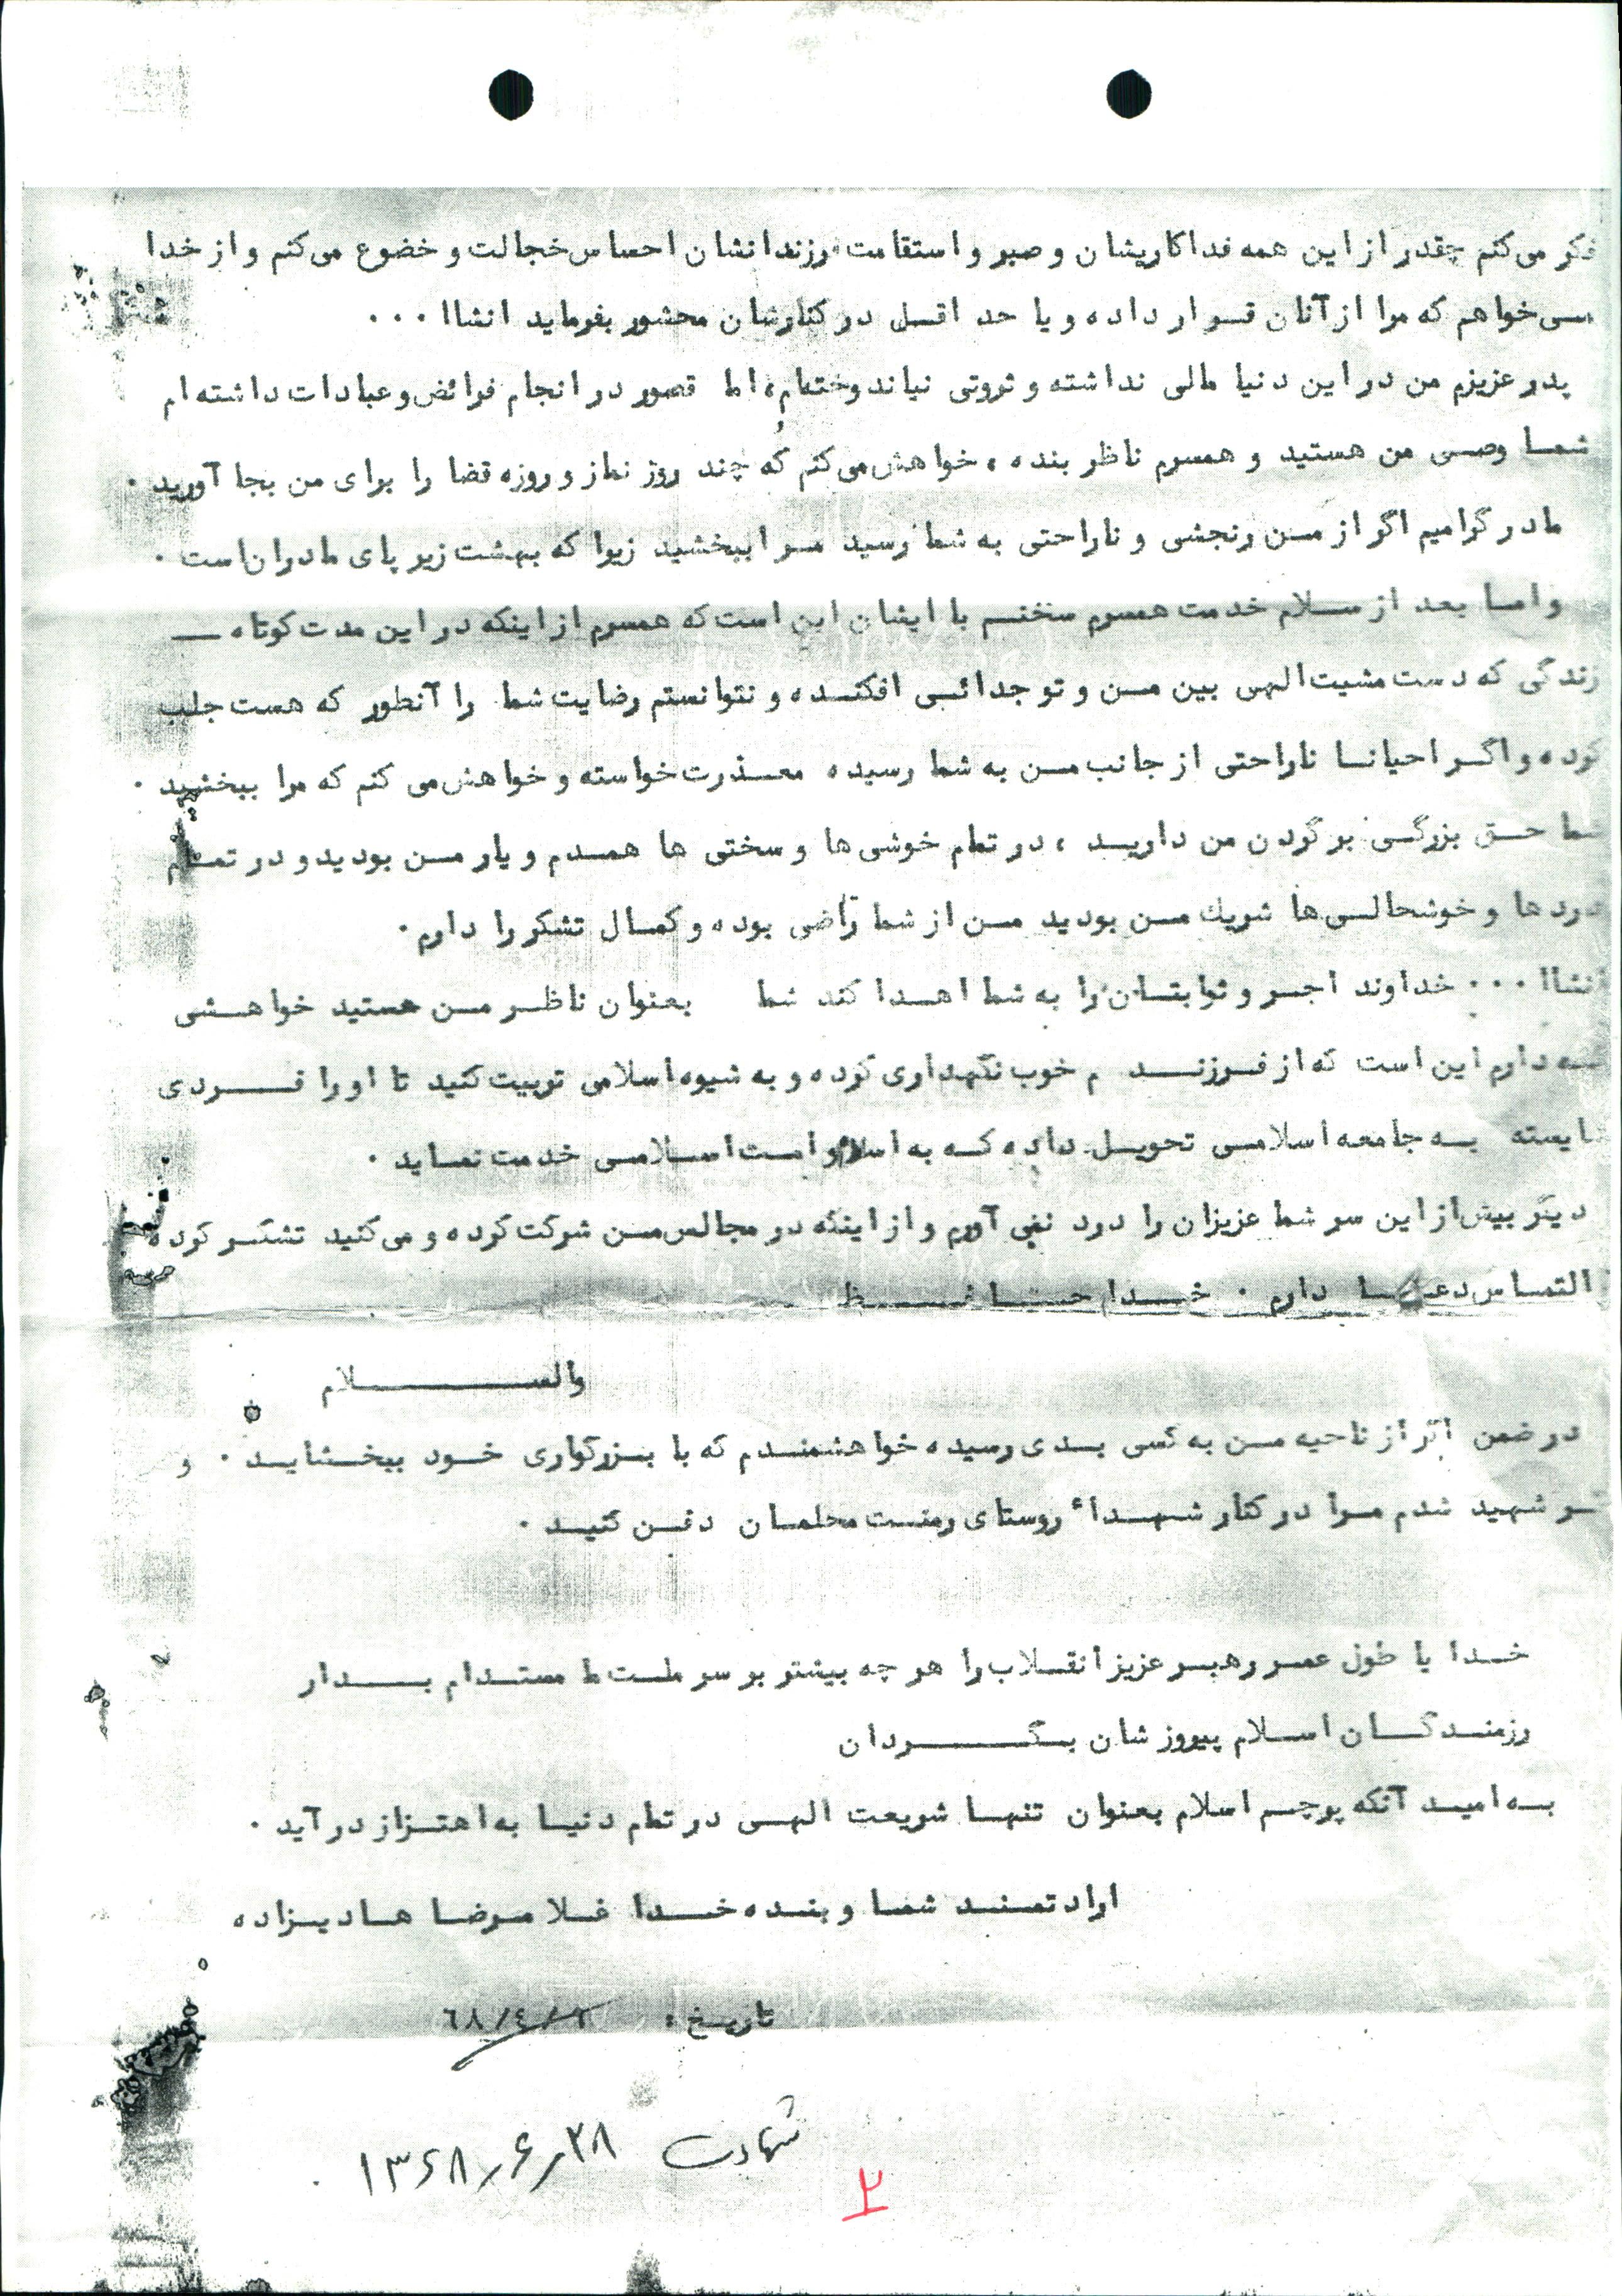 فکر می‌کنم چقدر از این همه فداکاریشان و صبر و استقامت رزندانشان احساس خجالت و خضوع می‌کنم و از خدا
می‌خواهم که مرا از آنان قرار داده و یا حد اقل در کنارشان محشور بفرماید انشاا...
پدر عزیزم من در این دنیا مالی نداشته و ثروتی نیاندوخته‌ام، اما قصور در انجام فرائض و عبادات داشته‌ام
شما وصی من هستید و همسرم ناظر بنده، خواهش می‌کنم که چند روز نماز و روزه قضا را برای من بجا آورید.
مادر گرامیم اگر از من رنجشی و ناراحتی به شما رسید مرا ببخشید زیرا که بهشت زیر پای مادران است.
و اما بعد از سلام خدمت همسرم سخنم با ایشان این است که همسرم از اینکه در این مدت کوتاه —
زندگی که دست مشیت الهی بین من و تو جدائی افکنده و نتوانستم رضایت شما را آنطور که هست جلب
کرده و اگر احیانا ناراحتی از جانب من به شما رسیده معذرت خواسته و خواهش می‌کنم که مرا ببخشید.
شما حق بزرگی بر گردن من دارید، در تمام خوشی‌ها و سختی‌ها همدم و یار من بودید و در تمام
دردها و خوشحالی‌ها شریك من بودید من از شما راضی بوده و کمال تشکر را دارم.
انشاا... خداوند اجر و ثوابتان را به شما اهدا کند شما بعنوان ناظر من هستید خواهشی
که دارم این است که از فرزندم خوب نگهداری کرده و به شیوه اسلامی تربیت کنید تا او را فردی
شایسته به جامعه اسلامی تحویل داده که به اسلام و امت اسلامی خدمت نماید.
دیگر بیش از این سر شما عزیزان را درد نمی آورم و از اینکه در مجالس من شرکت کرده و می‌کنید تشکر کرده
التماس دعا دارم. خدا حافظ
والسلام
در ضمن اگر از ناحیه من به کسی بدی رسیده خواهشمندم که با بزرگواری خود ببخشاید. و
گر شهید شدم مرا در کنار شهداء روستای رمنت محلمان دفن کنید.
خدا یا طول عمر رهبر عزیز انقلاب را هر چه بیشتر بر سر ملت ما مستدام بدار
رزمندگان اسلام پیروزشان بگردان
به امید آنکه پرچم اسلام بعنوان تنها شریعت الهی در تمام دنیا به اهتزاز در آید.
ارادتمند شما و بنده خدا غلامرضا هادیزاده
تاریخ: ٦٨/٤/
شهادت ۱۳۶۸٫۶٫۲۸
۲